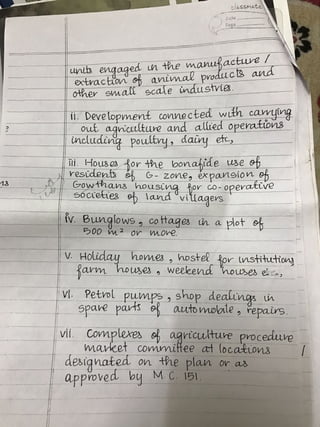 classmate
Date
Page
units engaged in the manufacture /
extraction of animal products and
other small scale industries.
ii. Development connected with carrying
out agriculture and allied operations
including poultry, dairy etc,
iii. Houses for the bonafide use of
residents of G- zone, expansion of
Gowthans housing for co-operative
societies of land villagers
iv. Bunglows, cottages in a plot of
500 m² or more.
v. Holiday homes, hostel for institutions
farm houses, weekend houses etc.,
vi. Petrol pumps, shop dealings in
spare parts of automobile, repairs.
vii. Complexes of agriculture procedure
market committee at locations
designated on the plan or as
approved by M.C. 151.